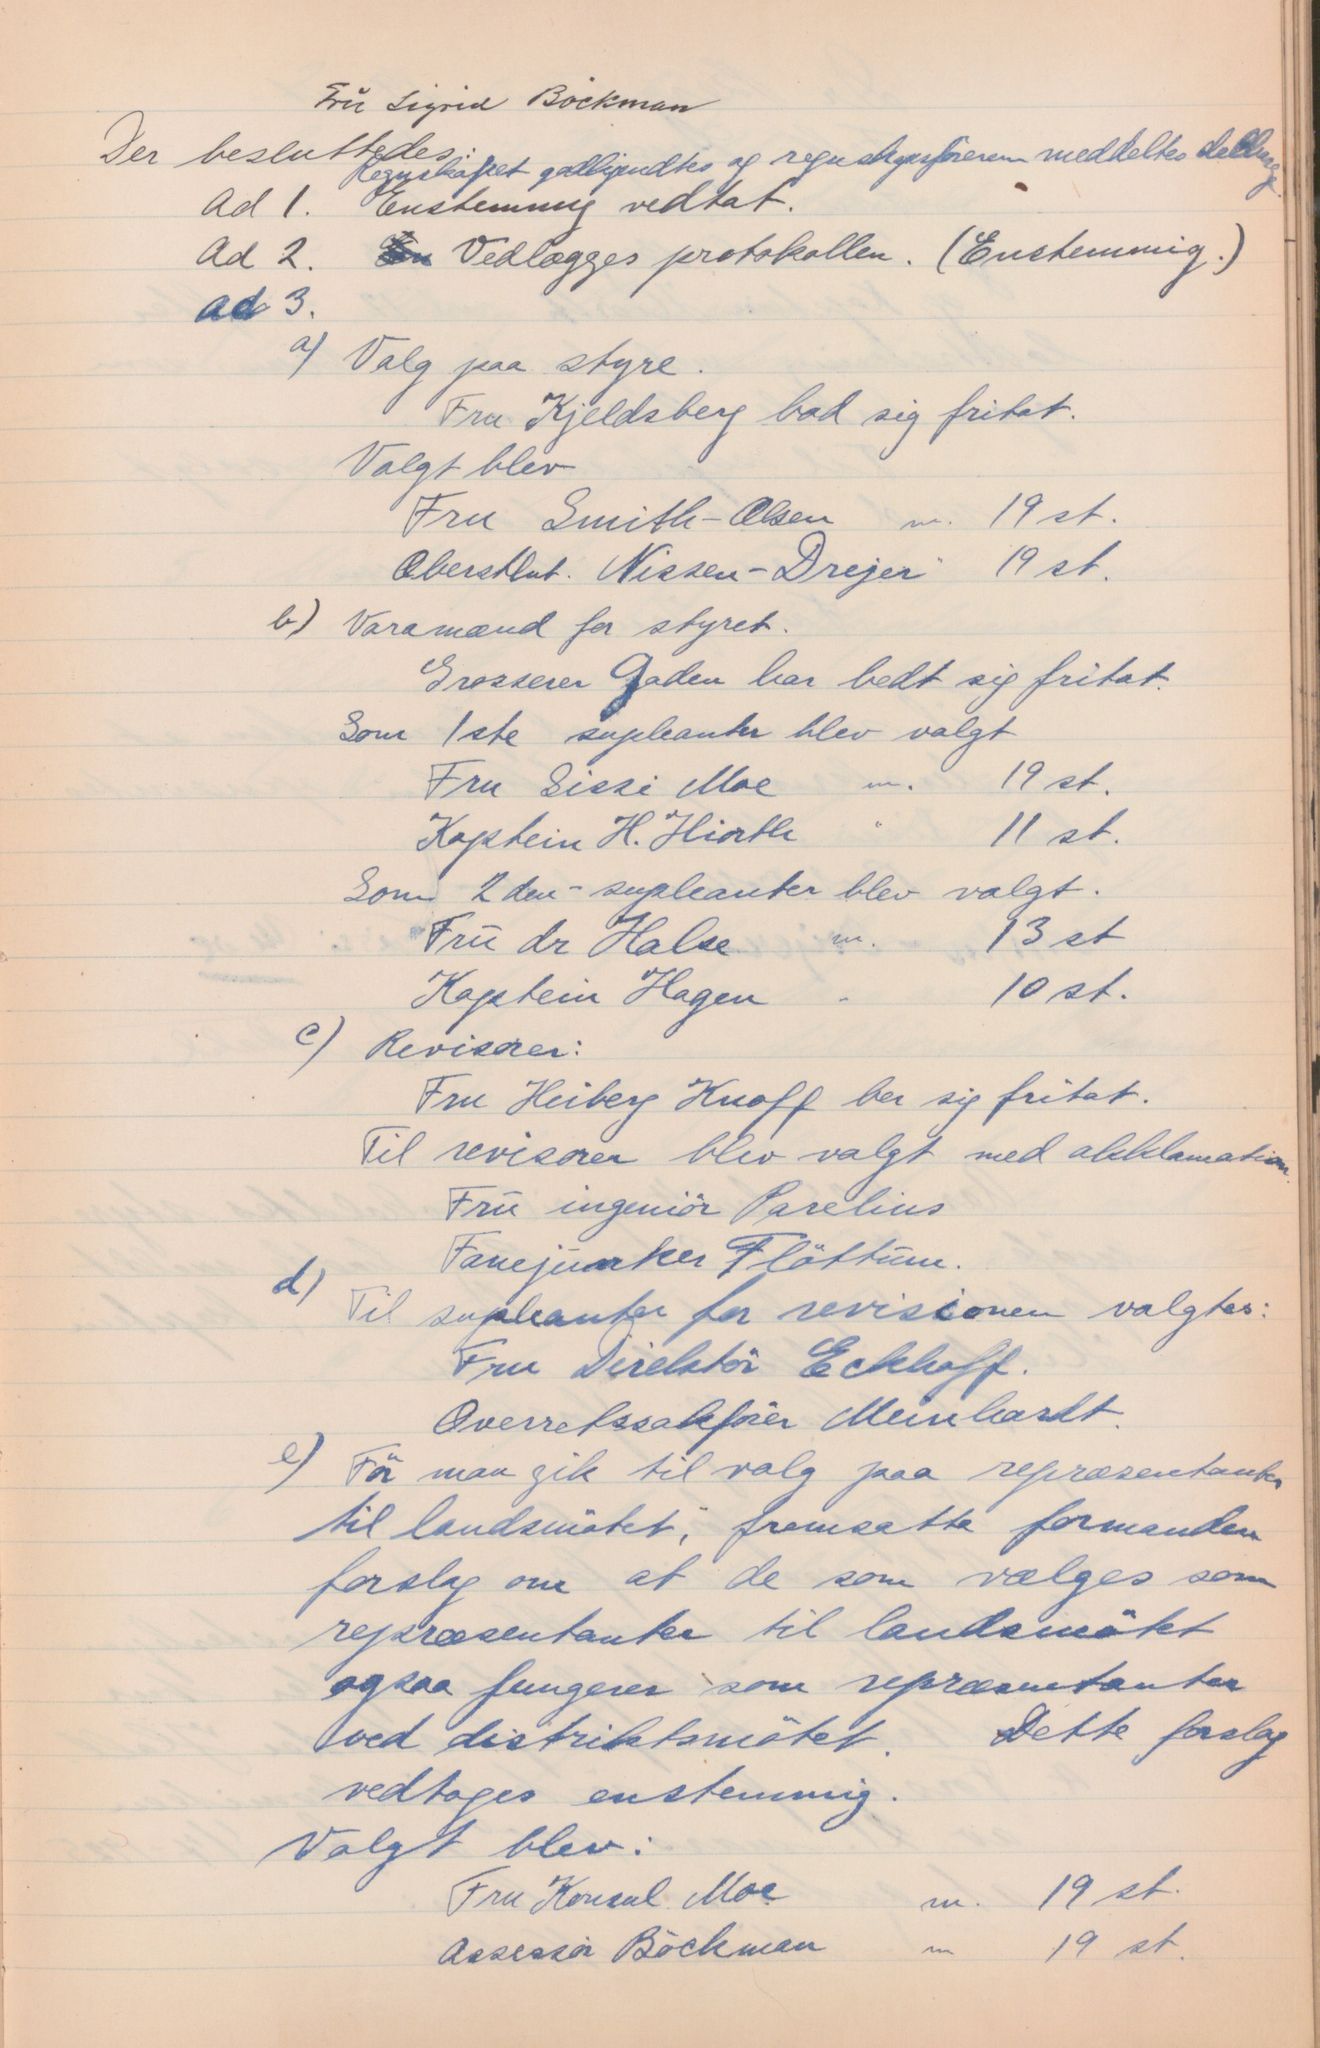 Frü Sigrid Böckman
Der besluttedes:
Regnskapet godkjendtes og regnskapsföreren meddeltes decharge.
Ad 1. Enstemmig vedtat.
Ad 2. Vedlægges protokollen. (Enstemmig.)
Ad 3.
a) Valg paa styre.
Fru Kjeldsberg bad sig fritat.
Valgt blev
Fru Smith-Olsen m. 19 st.
Oberstlöt. Nissen-Drejer " 19 st.
b) Varamænd for styret.
Grosserer Gaden har bedt sig fritat.
Som 1ste supleanter blev valgt
Fru Sissi Moe m. 19 st.
Kaptein H. Hiorth " 11 st.
Som 2den-supleanter blev valgt.
Frü dr Halse m. 13 st
Kaptein Hagen " 10 st.
c) Revisorer:
Fru Heiberg Knoff ber sig fritat.
Til revisorer blev valgt med akklamation.
Frü ingeniör Parelius
Fanejunker Flöttüm.
d) Til supleanter for revisionen valgtes:
Fru Direktör Eckhoff.
Overretssakförer Meinhardt.
e) För man gik til valg paa repræsentanter
til landsmötet, fremsatte formanden
forslag om at de som vælges som
repræsentanter til landsmötet
ogsaa fungerer som repræsentanter
ved distriktsmötet. Dette forslag
vedtoges enstemmig.
Valgt blev:
Fru Konsul Moe m. 19 st.
Assessor Böckman m 19 st.